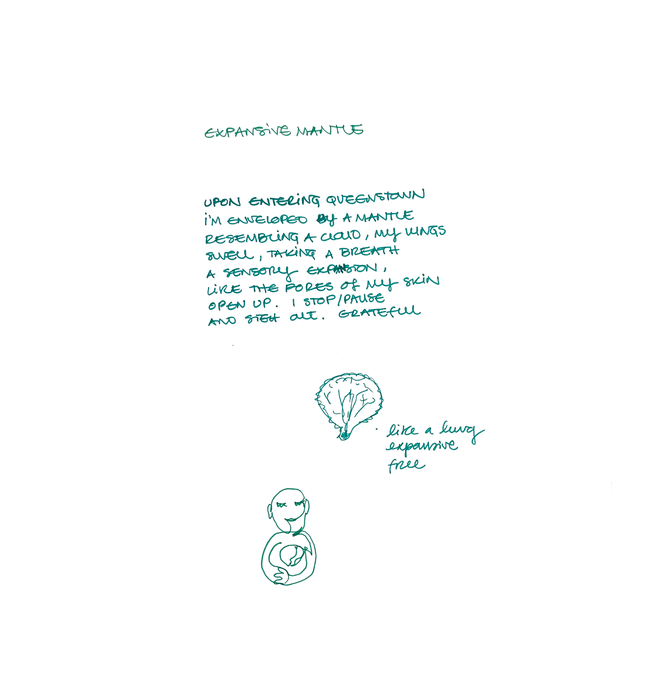 EXPANSIVE MANTLE
UPON ENTERING QUEENSTOWN
I'M ENVELOPED BY A MANTLE
RESEMBLING A CLOUD, MY LUNGS
SWELL, TAKING A BREATH
A SENSORY EXPANSION,
LIKE THE PORES OF MY SKIN
OPEN UP. I STOP/PAUSE
AND OUT. GRATEFUL
like a lung
expansive
free